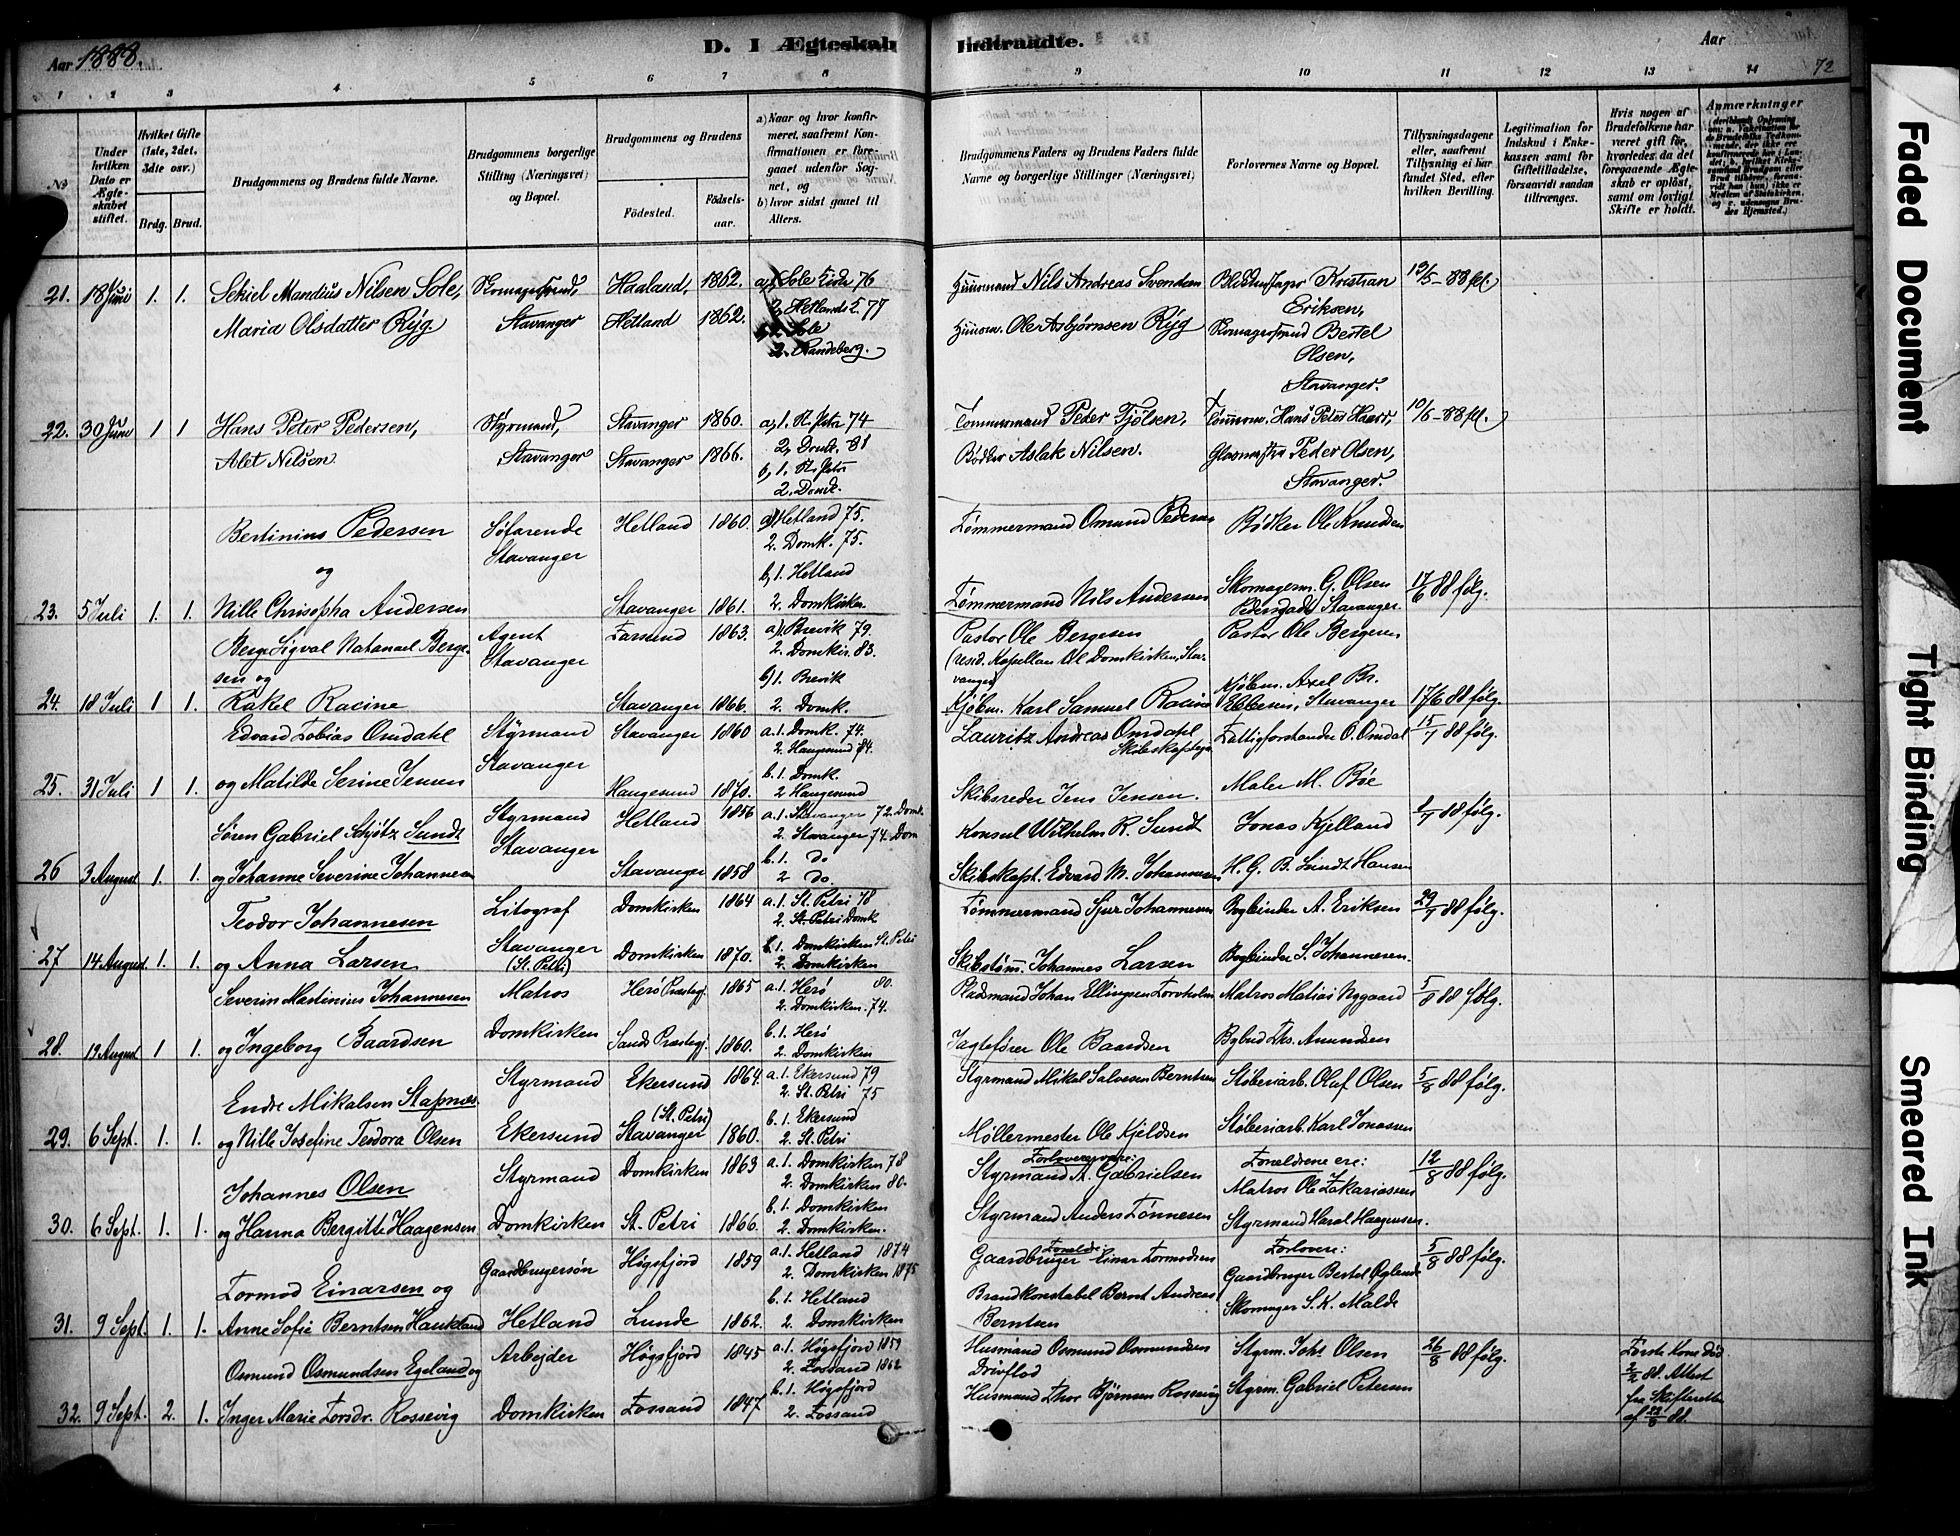 Aar 1888.
D. I Ægteskab Indtraadte.
Aar
72
1 2 3 4 5 6 7 8 9 10 11 12 13 14
No
Under hvilken Dato er Ægteskabet stiftet.
Hvilket Gifte (1ste, 2det, 3die osv.)
Brdg. Brud.
Brudgommens og Brudens fulde Navne.
Brudgommens borgerlige Stilling (Næringsvei) og Bopæl.
Brudgommens og Brudens
Fødested.
Fødselsaar.
a) Naar og hvor konfirmeret, saafremt Konfirmationen er foregaaet udenfor Sognet, og
b) hvor sidst gaaet til Alters.
Brudgommens Faders og Brudens Faders fulde Navne og borgerlige Stillinger (Næringsvei)
Forlovernes Navne og Bopæl.
Tillysningsdagene eller, saafremt Tillysning ei har fundet Sted, efter hvilken Bevilling.
Legitimation for Indskud i Enkekassen samt for Giftetilladelse, forsaavidt saadan tiltrænges.
Hvis nogen af Brudefolkene har været gift før, hvorledes da det foregaaende Ægteskab er opløst, samt om lovligt Skifte er holdt.
Anmærkninger
21. 18 Juni 1. 1. Sekiel Mandius Nilsen Sole, Skomagersvend, Haaland, 1862. a, 1. Sole Kirke 76 Husmand Nils Andreas Svendsen Kristian Eriksen, 13/5-88 fl.
Maria Olsdatter Ryg Stavanger Hetland 1862. 2, Hetlands K. 77 Husm. Ole Asbjørnsen Ryg Skomagersvend Bertel Olsen,
b, 1. Sole
2. Randeberg.
Stavanger.
22. 30 Juni 1 1 Hans Peter Pedersen, Styrmand, Stavanger 1860. a, 1. St. Petri 74 Tømmermand Peder Fjølsen, Tømmerm. Hans Peter Haarr, 10/5-88 fl.
Alet Nilsen Stavanger Stavanger 1866. 2, Domk. 81 Bødker Aslak Nilsen. Peder Olsen,
b, 1. St. Petri
2. Domk.
Stavanger.
Bertinius Pedersen Søfarende Hetland 1860. a) Hetland 75. Tømmermand Omund Pedersen Bødker Ole Knudsen
og Stavanger 2. Domk. 75.
b, 1. Hetland Skomagerm. G. Olsen
23. 5 Juli 1. 1. Nille Chrisopha Andersen Stavanger 1861. 2. Domkirken Tømmermand Nils Andersen Pedersgade Stavanger. 17/6 88 følg.
Berge Sigval Natanael Bergesen og Agent Farsund 1863. a) Brevik 79. Pastor Ole Bergesen Pastor Ole Bergesen
Stavanger 2. Domkir. 83. (resid. Kapellan til Domkirken, Stavanger)
b) 1. Brevik
24. 18 Juli 1 1. Rakel Racine Stavanger 1866. 2. Domk. Kjøbm. Karl Samuel Racine Kjøbm. Axel Br. Ebbesen, Stavanger 17/6 88 følg.
Edvard Tobias Omdahl Styrmand Stavanger 1860 a.1. Domk. 74. Lauritz Andreas Omdahl Fattigforstander O. Omdal 15/7 88 følg.
Stavanger 2. Haugesund 84. Skibskaptein
b. 1. Domk.
25. 31 Juli 1 1. og Matilde Serine Jensen Haugesund 1870. 2 Haugesund Skibsreder Jens Jensen. Maler M. Bøe
Søren Gabriel Schjøtz Sundt Styrmand Hetland 1856 a.1. Stavanger 72. Domk. Konsul Wilhelm R. Sundt Jonas Kjelland 1/7 88 følg.
Stavanger 2. Stavanger 74. Dom
b. 1. Do
26 3 August 1. 1. og Johanne Severine Johannesen Stavanger 1858 2 Do Skibskapt. Edvard M. Johannesen H. G. B. Sundt Hansen
Teodor Johannesen Litograf Domkirken 1864 a.1. St. Petri 78 Tømmermand Sjur Johannesen Bogbinder A. Eriksen 29/7 88 følg.
2. St. Petri Domk
Stavanger b. 1. Domkirken St. Petri
27 14 August. 1. 1. og Anna Larsen (St. Petri) Domkirken 1870. 2. Domkirken Skibstøm. Johannes Larsen Bogbinder S. Johannesen.
Severin Martinius Johannesen Matros Herø Præstegj. 1865 a.1. Herø 80. Pladsmand Johan Ellingsen Torvholm Matros Matias Nygaard 5/8 88 følg.
2. Domkirken. 74.
b. 1. Herø
28. 19 August 1 1. og Ingeborg Baardsen Domkirken Sands Præstegj. 1860. 2. Domkirken Jagtefører Ole Baardsen Bybud Ths. Amundsen
Endre Mikalsen Stapnæs Styrmand Ekersund 1864. a.1. Ekersund 79 Styrmand Mikal Salvesen Berntsen Støberiarb. Oluf Olsen 5/8 88 følg.
2. St. Petri 75
(St. Petri) b. 1. Ekersund
29. 6 Sept. 1. 1. og Nille Josefine Teodora Olsen Ekersund Stavanger 1860. 2. St. Petri Møllermester Ole Kjeldsen Støberiarb. Karl Jonassen
Johannes Olsen Styrmand Domkirken 1863 a.1. Domkirken 78 Styrmand A. Gabrielsen Forældrene ere: Matros Ole Zakariassen 12/8 88 følg.
2. Domkirken 80.
b. 1. Domkirken
30. 6 Sept. 1. 1. og Hanna Bergitte Haagensen Domkirken St. Petri 1866. 2. Domkirken. Styrmand Anders Tønnesen Styrmand Haral Haagensen.
Tormod Einarsen og Gaardbrugersøn Høgsfjord 1859 a.1. Hetland 1874 Gaardbruger Einar Tormodsen Forlovere: Gaardbruger Bertel Øglend 5/8 88 følg.
2. Domkirken 1875
b. 1. Hetland
31. 9 Sept. 1. 1. Anne Sofie Berntsen Haukland Hetland Lunde 1862. 2. Domkirken Brandkonstabel Bernt Andreas Berntsen Skomager S. K. Malde
Osmund Osmundsen Egeland og Arbejder Høgsfjord 1845 a.1. Høgsfjord 1859 Husmand Osmund Osmundsen Drivflod Styrm. Johs Olsen 26/8 88 følg. Første Kone død 2/2 88. Attest fra Skifteretten af 22/8 88.
2. Fossand 1862
b. 1. Høgsfjord
32. 9 Sept. 2. 1. Inger Marie Torsdr. Rossevig Domkirken Fossand 1847 2. Fossand Husmand Thor Bjørnsen Rossevig Styrm. Gabriel Petersen
Faded Document
Tight Binding
Smeared Ink